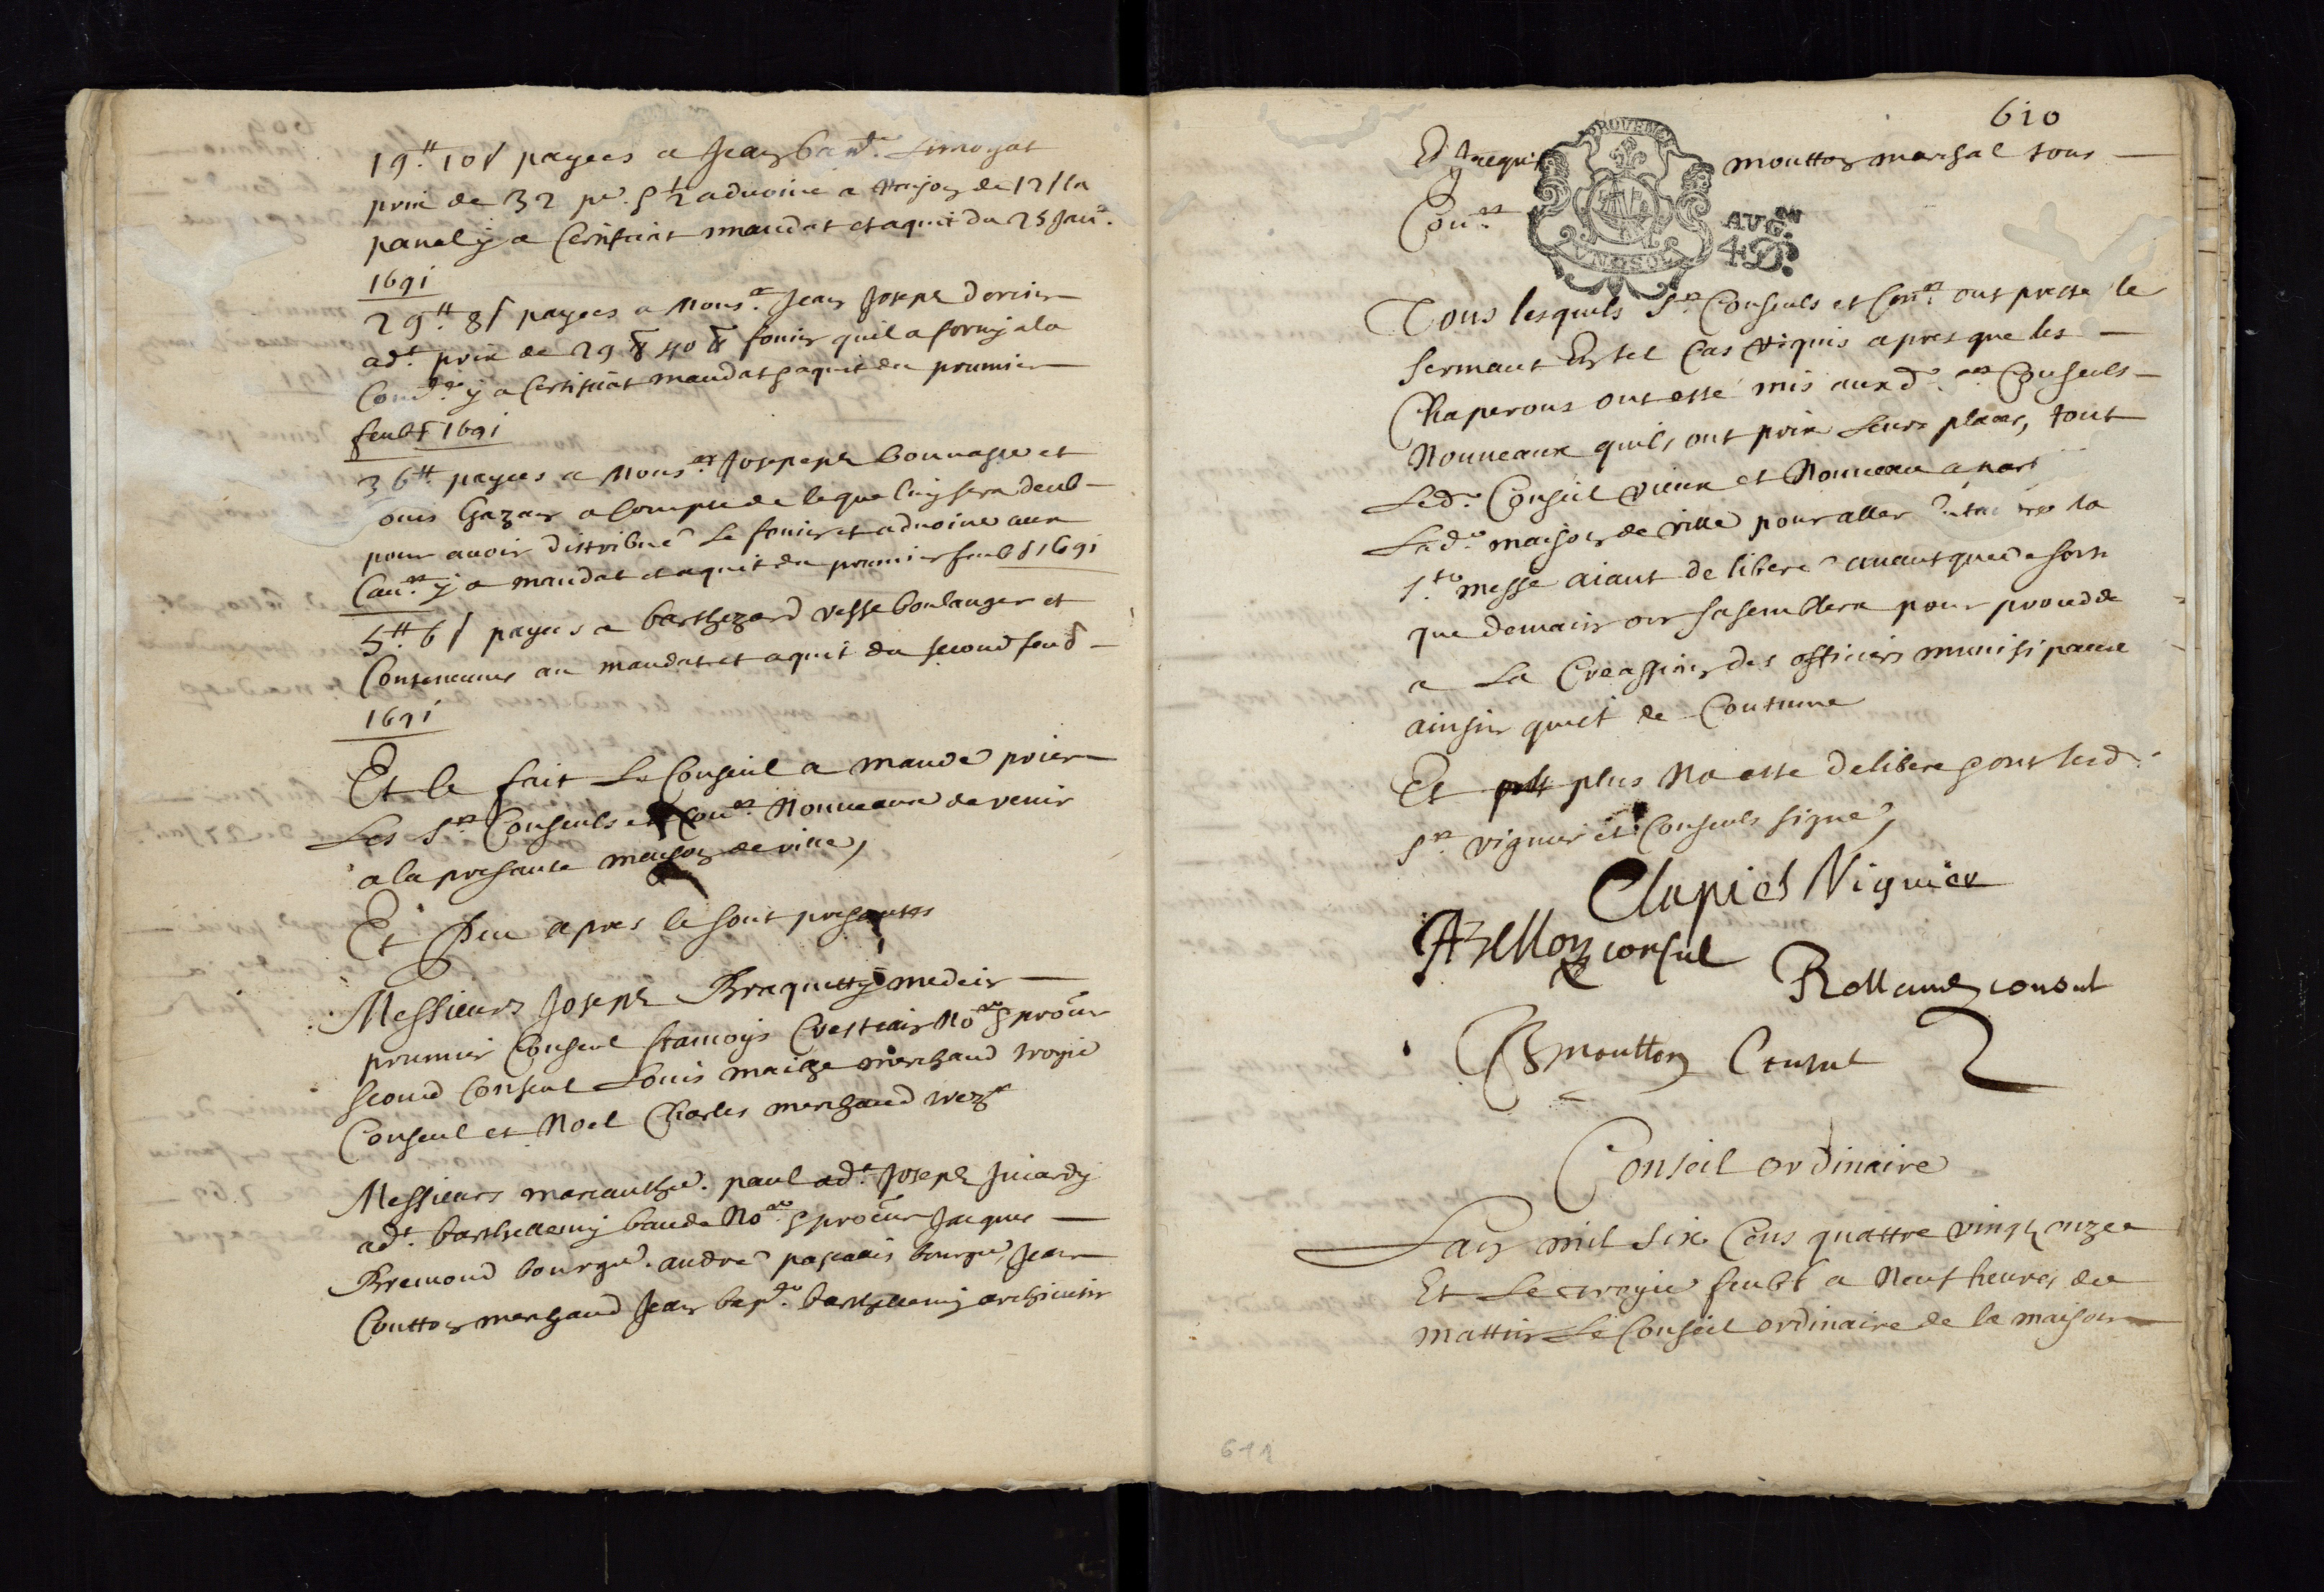 19.tt 10s payees a Jean bapt.e Limoyat
prix de 32 pl. & ½ advoine a Raison de 12s la
panal y a Certificat mandat et aquit du 25 Janr.
1691
29.tt 8s payees a Mons.r Jean Joseph
adt. prix de 29 40 foin quil a forny a la
y a Certificat mandat & aquit du premier
feubr 1691
36tt payees a Mons.r Joseph bonnasse et
a Compte de se que luy sera deub
pour avoir distribué Le foin et advoine aux
y a mandat et aquit du premier feub 1691
5.tt 6s payees a barthezard vesse boulanger et
Conteneues au mandat et aquit du second feub
1691
Et se fait Le Conseil a mandé prier
Les Srs Conseuls et Conrs Nouveaux de venir
a la presante maison de ville,
Et Peu apres se sont presantes
Messieurs Joseph Braquetty medecin
premier Conseul francoys Crestian No.re & procur
second Conseul Louis maize marchand troyie
Conseul et Noel Charles marchand trezr
Messieurs marcanthe. paul adt. Joseph Jicardy
adt. barthellemy baude No.re & procur Jacques
Bremond bourgs. andré pascalis bourgs, Jean
Coutton marchand Jean bapte. barthellemy
610
Et Jacques moutton marchal tous
Conrs
PROVENCE
UN SOL
AVG.on
4 D.
Tous lesquels Srs Conseuls et Conrs ont presté le
sermant En tel Cas Riquis apres que les
Chaperons ont esté mis aux d. Srs Conseuls
Nouveaux quils ont prix Leurs places, tout
Led. Conseil vieux et Nouveau a part
Lad. maison de ville pour aller la
Ste messe aiant deliberé avant que de sorti
que demain on sasemblera pour provedde
a La Creassion des officiers munisipaux
ainsin quest de Coutume
Et plus Na esté deliberé & ont lesd.
Srs viguier et Conseuls signé,
Clapiés Viguier
Azellon consul
Rolland consul
moutton Consul
Conseil ordinaire
Lan mil six Cens quattre vingt onze
Et Le troyie feubr a Neuf heures du
mattin Le Conseil ordinaire de la maison
611